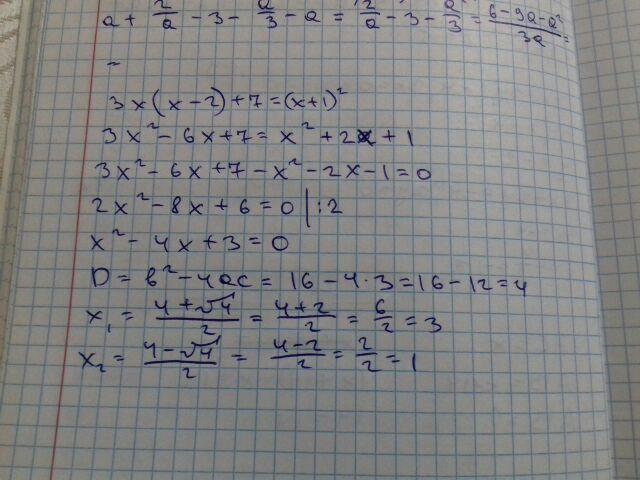 a + 2/a - 3 - a/3 - a = 2/a - 3 - a/3 = (6 - 9a - a²)/3a =
=
3x(x-2)+7=(x+1)²
3x²-6x+7=x²+2x+1
3x²-6x+7-x²-2x-1=0
2x²-8x+6=0|:2
x²-4x+3=0
D=b²-4ac=16-4·3=16-12=4
x₁=(4+√4)/2=(4+2)/2=6/2=3
x₂=(4-√4)/2=(4-2)/2=2/2=1